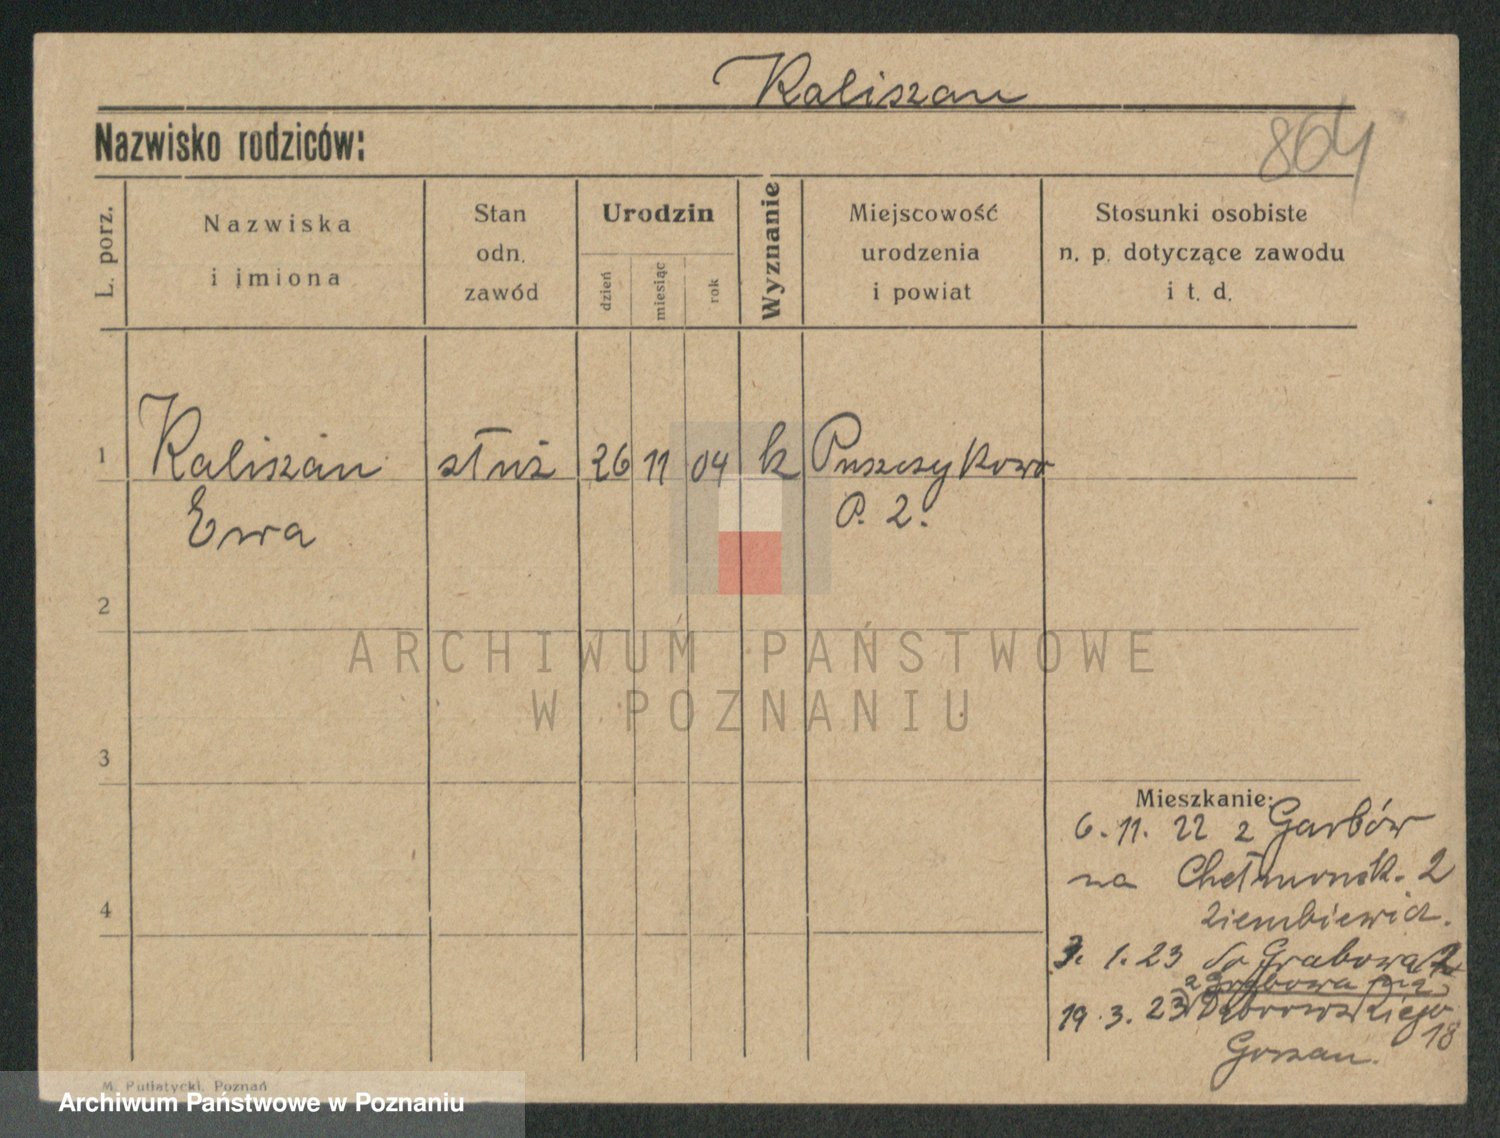 Kaliszan
Nazwisko rodziców:
864
L. porz.
Nazwiska
i imiona
Stan
odn.
zawód
Urodzin
dzień
miesiąc
rok
Wyznanie
Miejscowość
urodzenia
i powiat
Stosunki osobiste
n. p. dotyczące zawodu
i t. d.
1 Kaliszan służ 26 11 04 k Puszczykowo
Ewa P. 2.
2
ARCHIWUM PAŃSTWOWE
W POZNANIU
3
Mieszkanie:
6. 11. 22 z Garbów
na Chełmonsk. 2
Ziembiewicz.
4
1. 23 do Grabowa
19. 3. 23 Dąbrowskiego
18
M. Putiatycki, Poznań
Archiwum Państwowe w Poznaniu